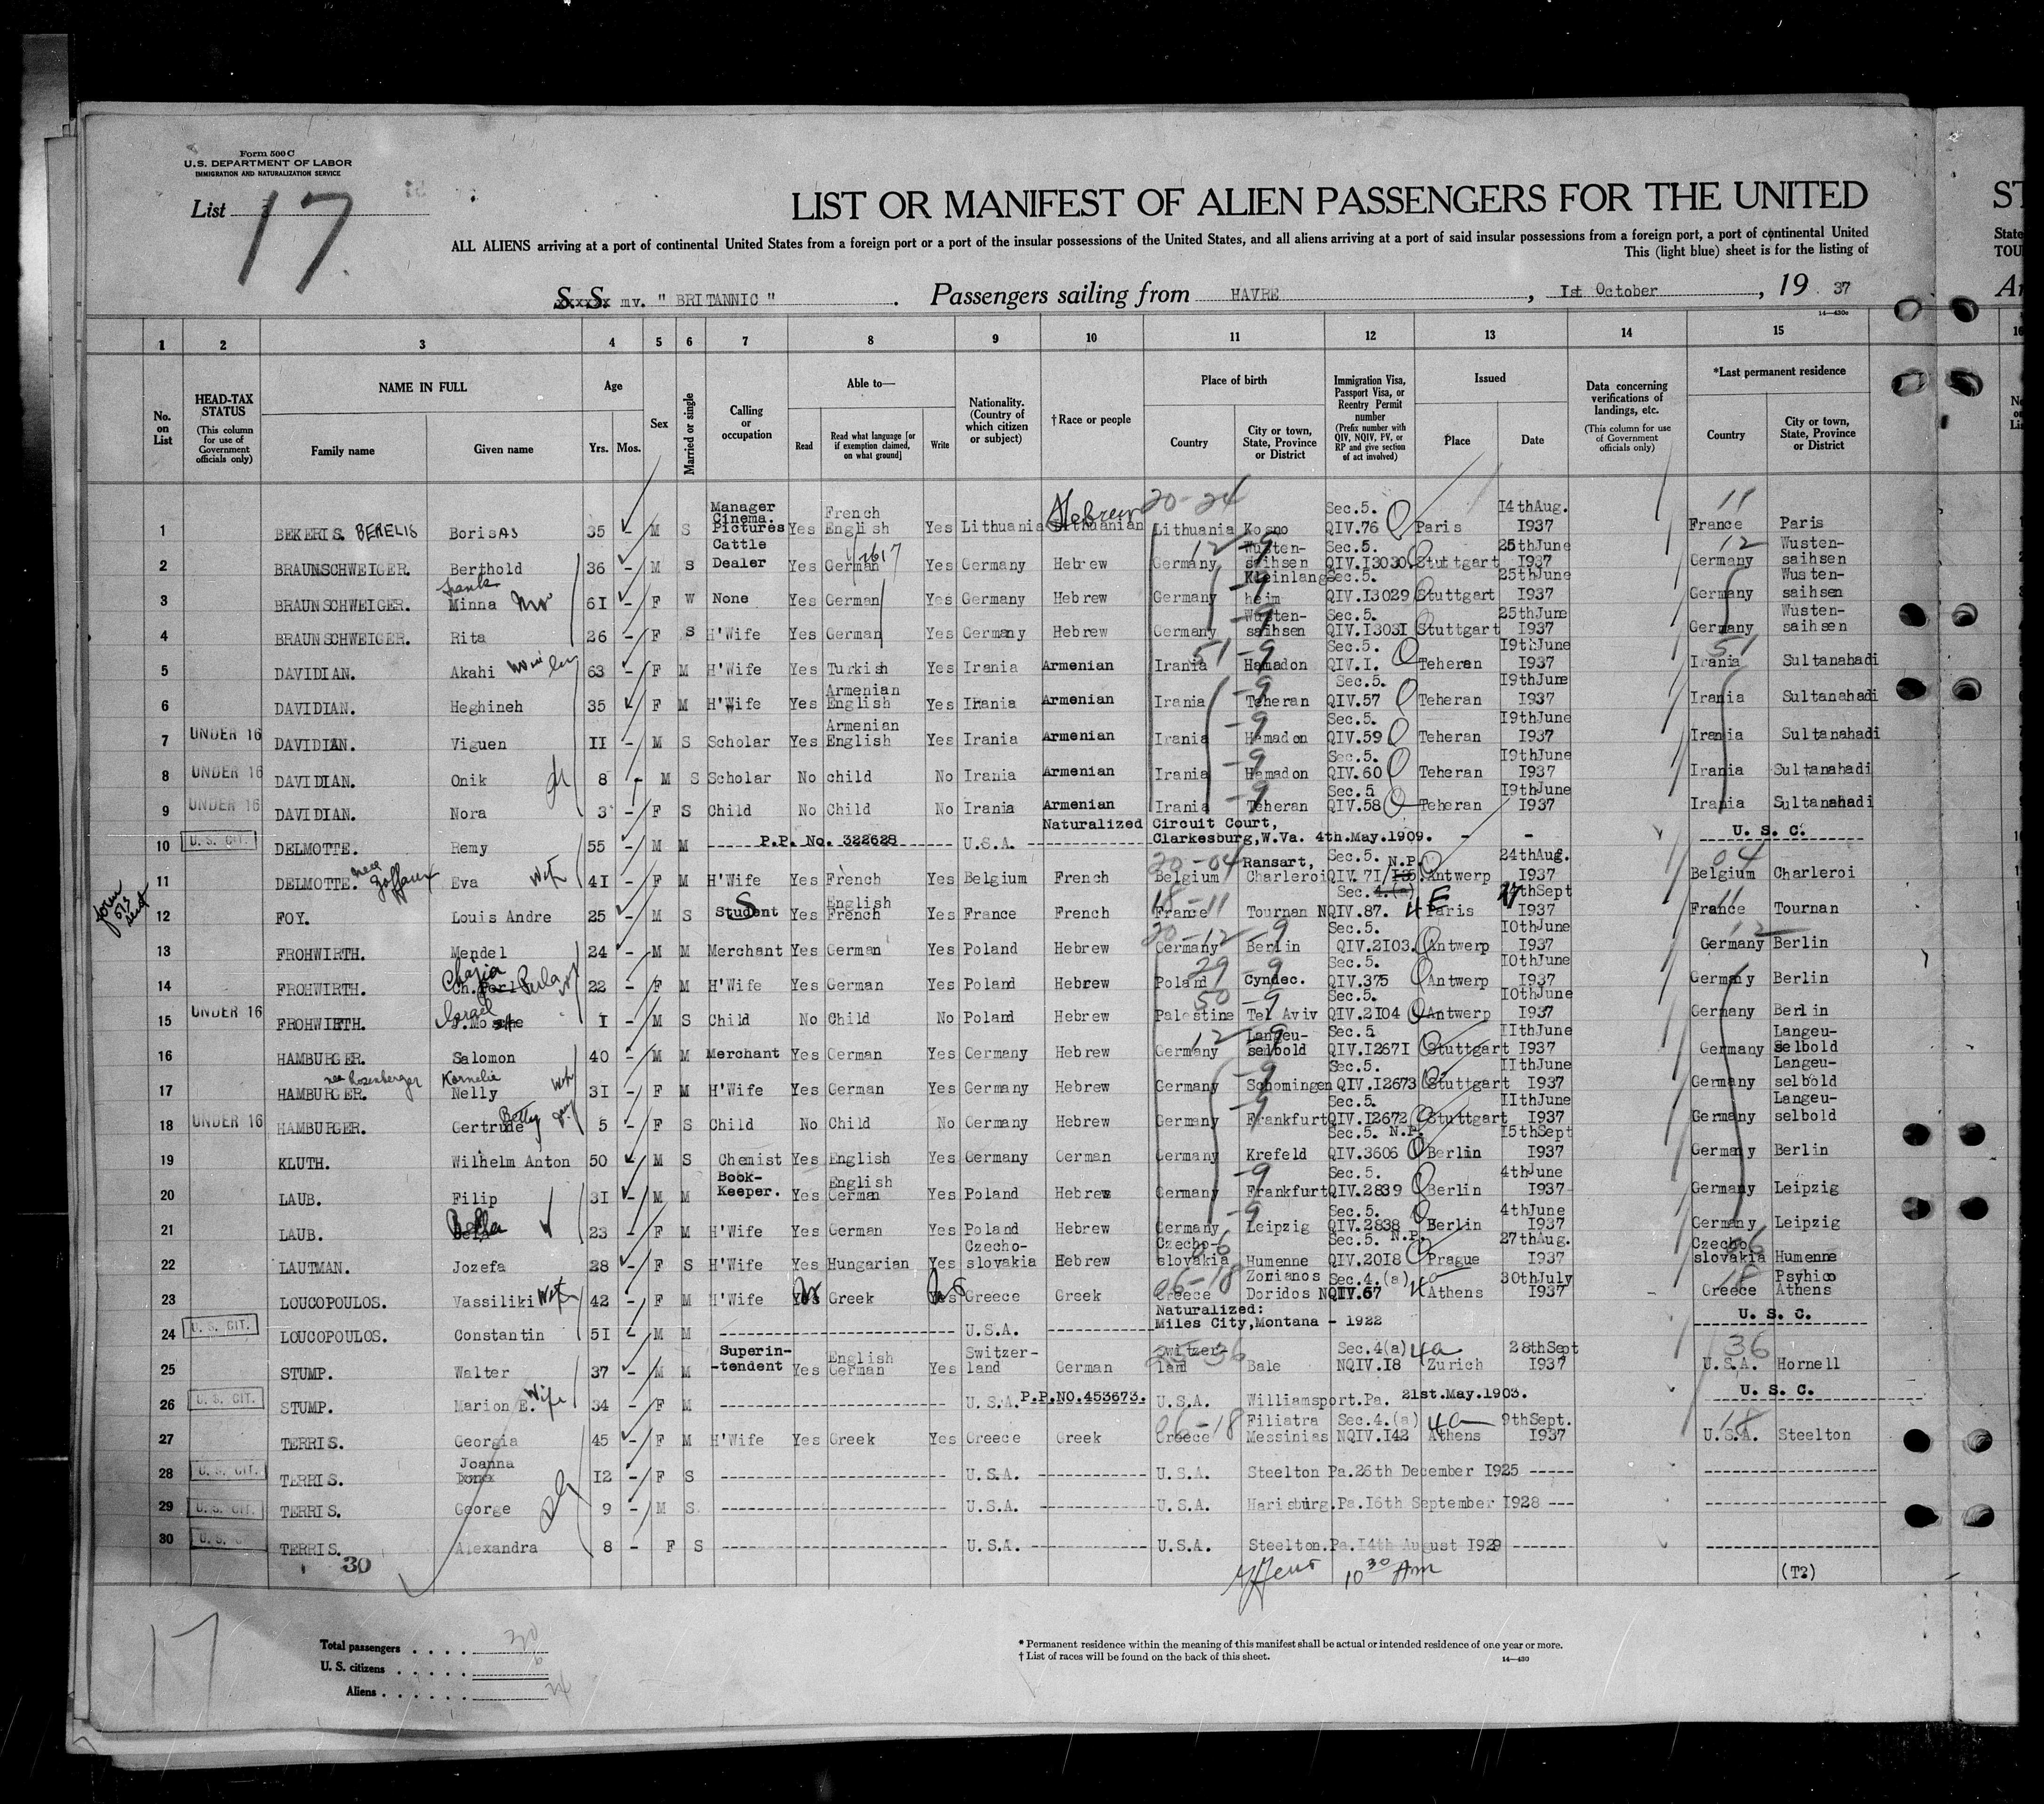 Form 500 C
U.S. DEPARTMENT OF LABOR
IMMIGRATION AND NATURALIZATION SERVICE
List 17
LIST OR MANIFEST OF ALIEN PASSENGERS FOR THE UNITED ST
ALL ALIENS arriving at a port of continental United States from a foreign port or a port of the insular possessions of the United States, and all aliens arriving at a port of said insular possessions from a foreign port, a port of continental United State
This (light blue) sheet is for the listing of TOU
S. S. mv. " BRITANNIC " . Passengers sailing from HAVRE , 1st October , 19 37 Ar
14—430c
1 2 3 4 5 6 7 8 9 10 11 12 13 14 15 16
No. on List HEAD-TAX STATUS (This column for use of Government officials only) NAME IN FULL Family name Given name Age Yrs. Mos. Sex Married or single Calling or occupation Able to— Read Read what language [or if exemption claimed, on what ground] Write Nationality. (Country of which citizen or subject) †Race or people Place of birth Country City or town, State, Province or District Immigration Visa, Passport Visa, or Reentry Permit number (Prefix number with QIV, NQIV, PV, or RP and give section of act involved) Issued Place Date Data concerning verifications of landings, etc. (This column for use of Government officials only) *Last permanent residence Country City or town, State, Province or District
1 BEKERIS. BERELIS BorisAS 35 - M S Manager Cinema. Pictures Yes French English Yes Lithuania Lithuanian Hebrew 20-24 Lithuania Kosno Sec.5. QIV.76 Paris 14thAug. I937 11 France Paris
2 BRAUNSCHWEIGER. Berthold 36 - M S Cattle Dealer Yes German Yes Germany Hebrew 12 -9 Germany Wusten-saihsen Sec.5. QIV.I3030 Stuttgart 25thJune I937 12 Germany Wusten-saihsen
3 BRAUNSCHWEIGER. Minna 6I - F W None Yes German Yes Germany Hebrew -9 Germany Kleinlangheim Sec.5. QIV.I3029 Stuttgart 25thJune I937 Germany Wusten-saihsen
4 BRAUNSCHWEIGER. Rita 26 - F S H'Wife Yes German Yes Germany Hebrew -9 Germany Wusten-saihsen Sec.5. QIV.I303I Stuttgart 25thJune I937 Germany Wusten-saihsen
5 DAVIDIAN. Akahi 63 - F M H'Wife Yes Turkish Yes Irania Armenian 51 -9 Irania Hamadon Sec.5. QIV.I. Teheren I9thJune I937 51 Irania Sultanahadi
6 DAVIDIAN. Heghineh 35 - F M H'Wife Yes Armenian English Yes Irania Armenian -9 Irania Teheran Sec.5. QIV.57 Teheran I9thJune I937 Irania Sultanahadi
7 UNDER 16 DAVIDIAN. Viguen II - M S Scholar Yes Armenian English Yes Irania Armenian -9 Irania Hamadon Sec.5. QIV.59 Teheran I9thJune I937 Irania Sultanahadi
8 UNDER 16 DAVIDIAN. Onik 8 - M S Scholar No child No Irania Armenian -9 Irania Hamadon Sec.5. QIV.60 Teheran I9thJune I937 Irania Sultanahadi
9 UNDER 16 DAVIDIAN. Nora 3 - F S Child No Child No Irania Armenian -9 Irania Teheran Sec.5 QIV.58 Teheran I9thJune I937 Irania Sultanahadi
10 U.S. CIT. DELMOTTE. Remy 55 - M M P.P. No. 322628 U.S.A. Naturalized Circuit Court, Clarkesburg,W.Va. 4th.May.1909. - - U. S. C.
11 DELMOTTE. nee Eva Wife 4I - F M H'Wife Yes French Yes Belgium French 20-04 Belgium Ransart, Charleroi Sec.5. N.P. QIV.7I/ Antwerp 24thAug. I937 04 Belgium Charleroi
12 FOY. Louis Andre 25 - M S Student S Yes English French Yes France French 18-11 France Tournan Sec.4.(a) NQIV.87. 4E Paris Sept I937 11 France Tournan
13 FROHWIRTH. Mendel 24 - M M Merchant Yes German Yes Poland Hebrew 20-12-9 Germany Berlin Sec.5. QIV.2I03. Antwerp I0thJune I937 12 Germany Berlin
14 FROHWIRTH. Chaja Perla 22 - F M H'Wife Yes German Yes Poland Hebrew 29 -9 Poland Cyndec. Sec.5. QIV.375 Antwerp I0thJune I937 Germany Berlin
15 UNDER 16 FROHWIRTH. Israel I - M S Child No Child No Poland Hebrew 50 -9 Palestine Tel Aviv Sec.5. QIV.2I04 Antwerp I0thJune I937 Germany Berlin
16 HAMBURGER. Salomon 40 - M M Merchant Yes German Yes Germany Hebrew 12 -9 Germany Langeu-selbold Sec.5 QIV.I267I Stuttgart IIthJune I937 Germany Langeu-selbold
17 HAMBURGER. nee Rosenberger Kornelie Nelly Wife 3I - F M H'Wife Yes German Yes Germany Hebrew -9 Germany Schomingen Sec.5. QIV.I2673 Stuttgart IIthJune I937 Germany Langeu-selbold
18 UNDER 16 HAMBURGER. Gertrude Betty 5 - F S Child No Child No Germany Hebrew -9 Germany Frankfurt Sec.5. QIV.I2672 Stuttgart IIthJune I937 Germany Langeu-selbold
19 KLUTH. Wilhelm Anton 50 - M S Chemist Yes English Yes Germany German Germany Krefeld Sec.5. N.P. QIV.3606 Berlin I5thSept I937 Germany Berlin
20 LAUB. Filip 3I - M M Book-Keeper. Yes English German Yes Poland Hebrew -9 Germany Frankfurt Sec.5. QIV.2839 Berlin 4thJune I937 Germany Leipzig
21 LAUB. Bella 23 - F M H'Wife Yes German Yes Poland Hebrew -9 Germany Leipzig Sec.5. QIV.2838 Berlin 4thJune I937 Germany Leipzig
22 LAUTMAN. Jozefa 28 - F S H'Wife Yes Hungarian Yes Czecho-slovakia Hebrew 06 Czecho-slovakia Humenne Sec.5. N.P. QIV.20I8 Prague 27thAug. I937 06 Czecho slovakia Humenne
23 LOUCOPOULOS. Vassiliki Wife 42 - F M H'Wife Yes Greek Yes Greece Greek 06-18 Greece Zorianos Doridos Sec.4.(a) NQIV.67 4a Athens 30thJuly I937 18 Greece Psyhico Athens
24 U.S. CIT. LOUCOPOULOS. Constantin 5I - M M U.S.A. Naturalized: Miles City,Montana - 1922 U. S. C.
25 STUMP. Walter 37 - M M Superin--tendent Yes English German Yes Switzer-land German 36 Switzer-land Bale Sec.4(a) NQIV.I8 4a Zurich 28thSept I937 36 U.S.A. Hornell
26 U.S. CIT. STUMP. Marion E. Wife 34 - F M U.S.A. P.P.NO.453673. U.S.A. Williamsport.Pa. 21st.May.1903. U. S. C.
27 TERRIS. Georgia 45 - F M H'Wife Yes Greek Yes Greece Greek 06-18 Greece Filiatra Messinias Sec.4.(a) NQIV.I42 4a Athens 9thSept. I937 18 U.S.A. Steelton
28 U.S. CIT. TERRIS. Joanna I2 - F S U.S.A. U.S.A. Steelton Pa.26th December I925
29 U.S. CIT. TERRIS. George 9 - M S. U.S.A. U.S.A. Harisburg.Pa.I6th September I928
30 U.S. C TERRIS. Alexandra 8 - F S U.S.A. U.S.A. Steelton.Pa.I4th August I929
30 10 30 Am (T?)
17
Total passengers . . . . 30
U. S. citizens . . . . . 6
Aliens . . . . . . 24
* Permanent residence within the meaning of this manifest shall be actual or intended residence of one year or more.
† List of races will be found on the back of this sheet. 14—430